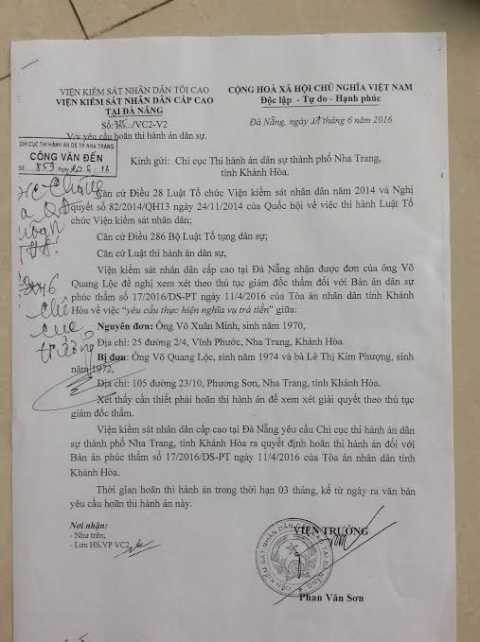 VIỆN KIỂM SÁT NHÂN DÂN TỐI CAO
VIỆN KIỂM SÁT NHÂN DÂN CẤP CAO
TẠI ĐÀ NẴNG
Số: /VC2-V2
V/v yêu cầu hoãn thi hành án dân sự.
CỘNG HOÀ XÃ HỘI CHỦ NGHĨA VIỆT NAM
Độc lập - Tự do - Hạnh phúc
Đà Nẵng, ngày tháng 6 năm 2016
CHI CỤC THI HÀNH ÁN DS TP NHA TRANG
CÔNG VĂN ĐẾN
Số 859 ngày
Kính gửi: Chi cục Thi hành án dân sự thành phố Nha Trang,
tỉnh Khánh Hòa.
Căn cứ Điều 28 Luật Tổ chức Viện kiểm sát nhân dân năm 2014 và Nghị
quyết số 82/2014/QH13 ngày 24/11/2014 của Quốc hội về việc thi hành Luật Tổ
chức Viện kiểm sát nhân dân;
Căn cứ Điều 286 Bộ Luật Tố tụng dân sự;
Căn cứ Luật thi hành án dân sự,
Viện kiểm sát nhân dân cấp cao tại Đà Nẵng nhận được đơn của ông Võ
Quang Lộc đề nghị xem xét theo thủ tục giám đốc thẩm đối với Bản án dân sự
phúc thẩm số 17/2016/DS-PT ngày 11/4/2016 của Tòa án nhân dân tỉnh Khánh
Hòa về việc "yêu cầu thực hiện nghĩa vụ trả tiền" giữa:
Nguyên đơn: Ông Võ Xuân Minh, sinh năm 1970,
Địa chỉ: 25 đường 2/4, Vĩnh Phước, Nha Trang, Khánh Hòa.
Bị đơn: Ông Võ Quang Lộc, sinh năm 1974 và bà Lê Thị Kim Phượng, sinh
năm 1972,
Địa chỉ: 105 đường 23/10, Phương Sơn, Nha Trang, tỉnh Khánh Hòa.
Xét thấy cần thiết phải hoãn thi hành án để xem xét giải quyết theo thủ tục
giám đốc thẩm.
Viện kiểm sát nhân dân cấp cao tại Đà Nẵng yêu cầu Chi cục Thi hành án dân
sự thành phố Nha Trang, tỉnh Khánh Hòa ra quyết định hoãn thi hành án đối với
Bản án phúc thẩm số 17/2016/DS-PT ngày 11/4/2016 của Tòa án nhân dân tỉnh
Khánh Hòa.
Thời gian hoãn thi hành án trong thời hạn 03 tháng, kể từ ngày ra văn bản
yêu cầu hoãn thi hành án này.
Nơi nhận:
- Như trên;
- Lưu HS,VP VC2.
VIỆN TRƯỞNG
Phan Văn Sơn